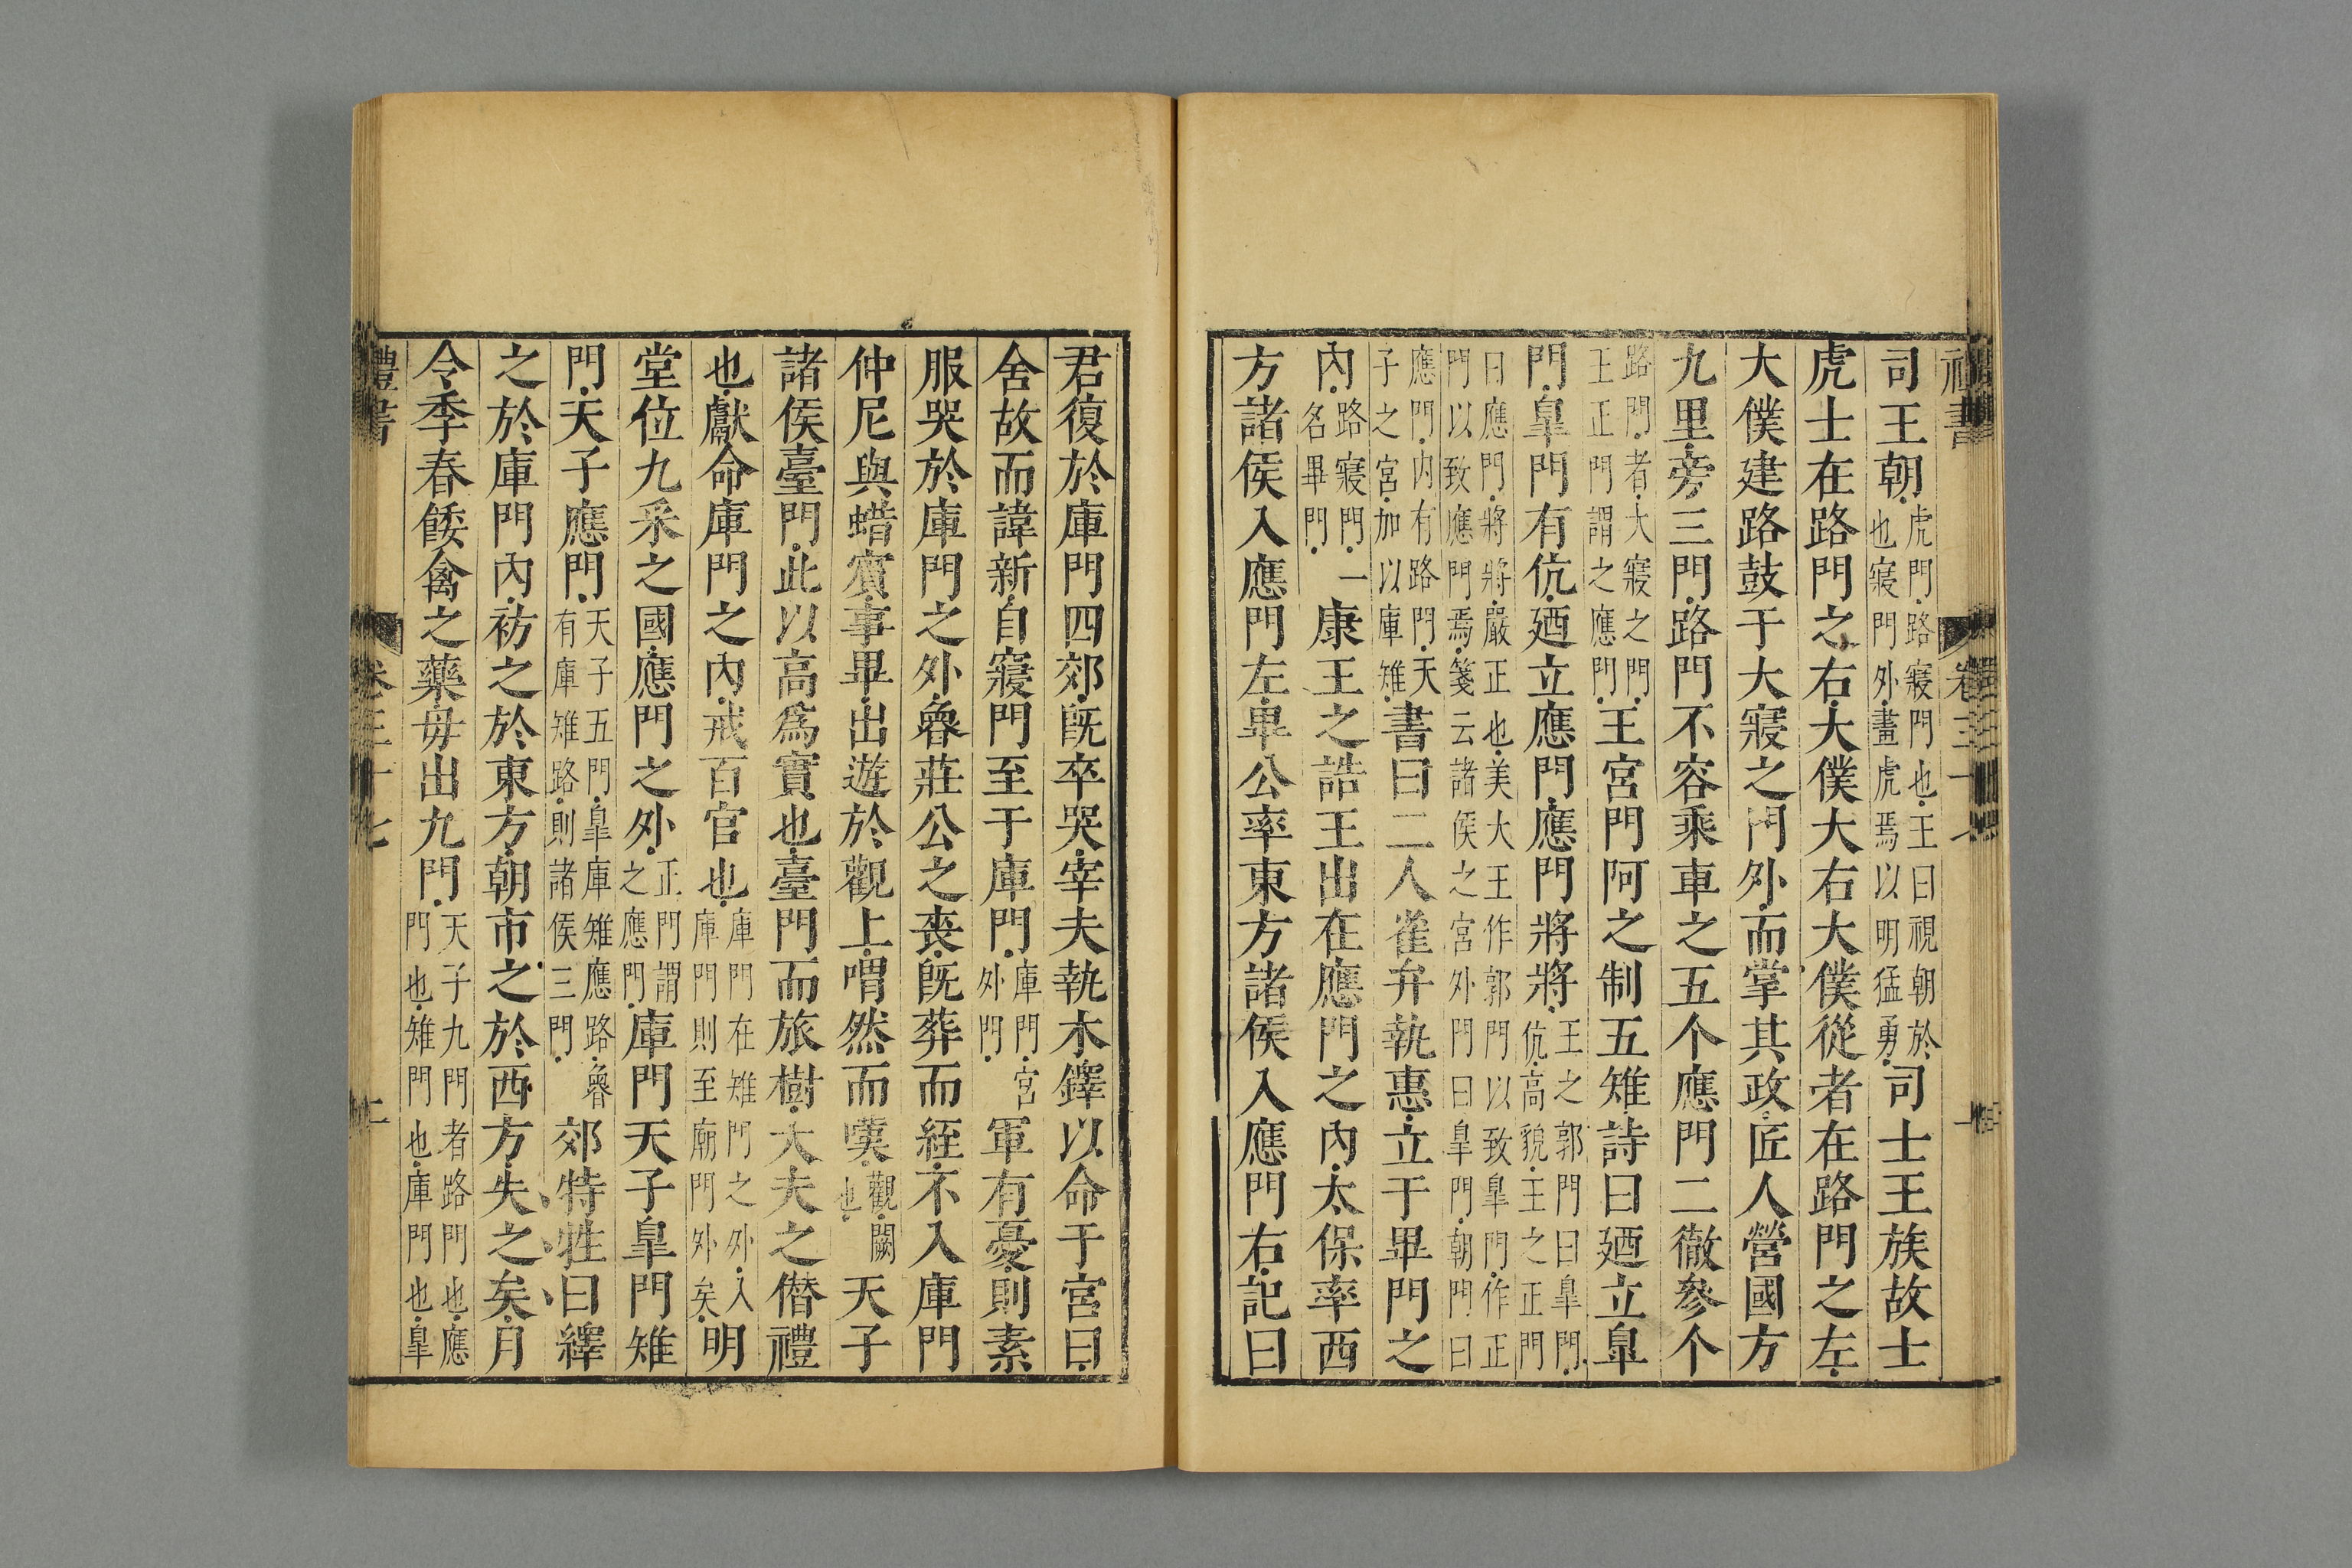 禮書 卷三十七
司王朝虎門路寢門也王曰視朝於也寢門外畫虎焉以明猛勇司士王族故士
虎士在路門之右大僕大右大僕從者在路門之左
大僕建路鼓于大寢之門外而掌其政匠人營國方
九里旁三門路門不容乘車之五个應門二徹參个
路門者大寢之門王正門謂之應門王宮門阿之制五雉詩曰廼立皐
門皐門有伉廼立應門應門將將王之郭門曰皐門伉高貌王之正門
曰應門將將嚴正也美大王作郭門以致皐門作正門以致應門焉箋云諸侯之宮外門曰皐門朝門曰
應門內有路門天子之宮加以庫雉書曰二人雀弁執惠立于畢門之
內路寢門一名畢門康王之誥王出在應門之內太保率西
方諸侯入應門左畢公率東方諸侯入應門右記曰
君復於庫門四郊既卒哭宰夫執木鐸以命于宮曰
舍故而諱新自寢門至于庫門庫門宮外門軍有憂則素
服哭於庫門之外魯莊公之喪既葬而絰不入庫門
仲尼與蜡賓事畢出遊於觀上喟然而嘆觀闕也天子
諸侯臺門此以高爲實也臺門而旅樹大夫之僭禮
也獻命庫門之內戒百官也庫門在雉門之外入庫門則至廟門外矣明
堂位九采之國應門之外正門謂之應門庫門天子皐門雉
門天子應門天子五門皐庫雉應路魯有庫雉路則諸侯三門郊特牲曰繹
之於庫門內祊之於東方朝市之於西方失之矣月
令季春餧禽之藥毋出九門天子九門者路門也應門也雉門也庫門也皐
禮書 卷三十七